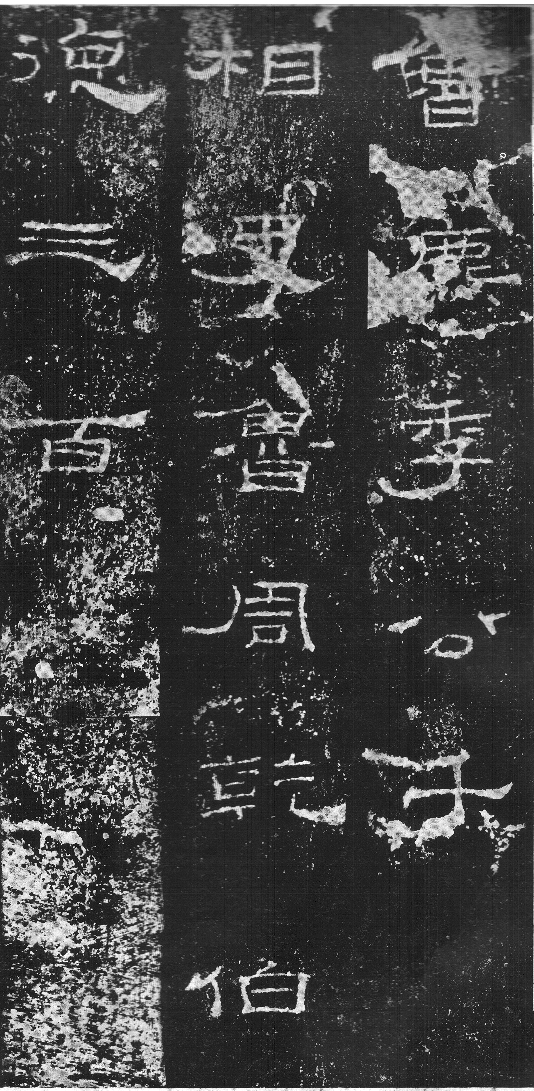 季公子
相史魯周乾伯
德三百